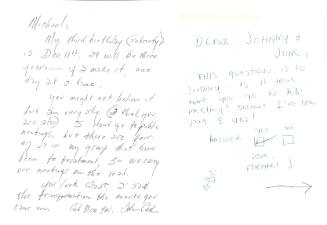 Michael,
My third birthday (sobriety)
is Dec 11th. It will be three
years — if I make it, one
day at a time.
You might not believe it
but I'm very shy (I think you
are also). I don't go to public
meetings, but there are four
of us in my group that have
been to treatment, so we carry
our meetings on the road.
You look Great. I saw
the transformation the minute you
came on. God Bless You. John Cash
DEAR JOHNNY &
JUNE,
THIS QUESTION IS TO
JOHNNY. IS IT TRUE
THAT YOU GO TO AA
MEETINGS?
ANSWER YES NO
LOVE,
MICHAEL J